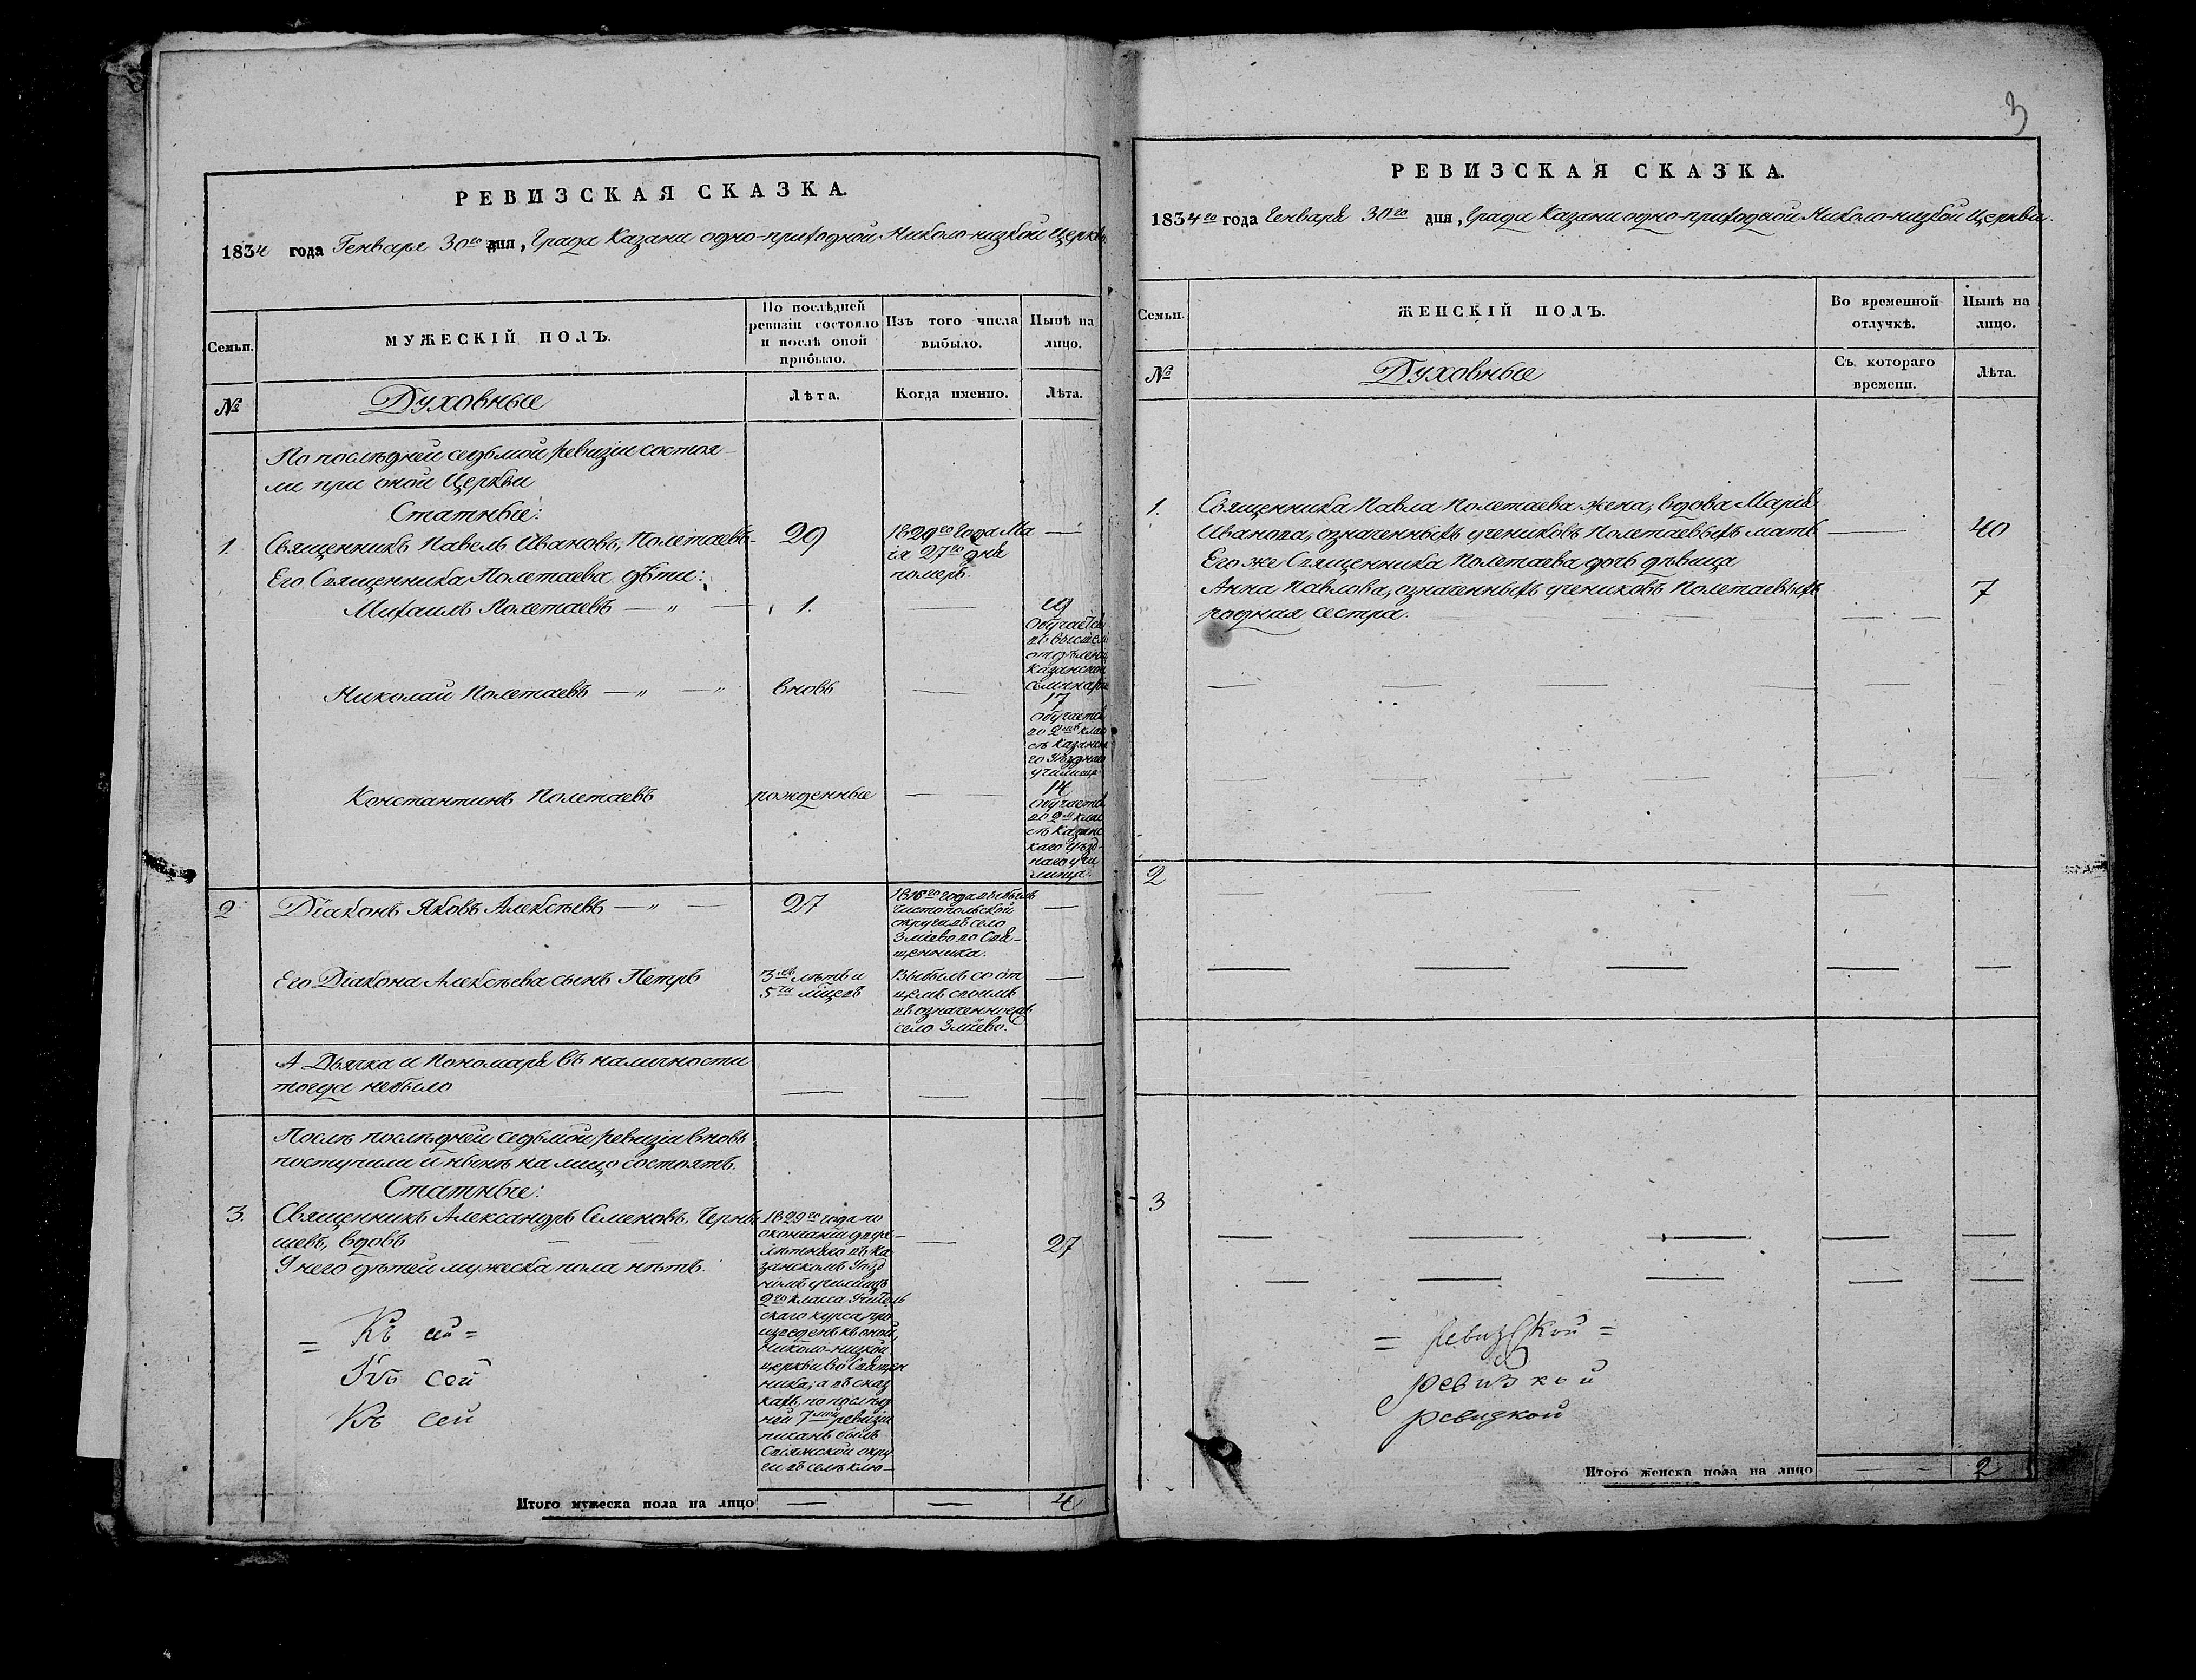 РЕВИЗСКАЯ СКАЗКА.
1834 года Генваря 30го дня, Града Казани одно-приходной Николо-низкой Церкви
Семьи.
МУЖЕСКІЙ ПОЛЪ.
По послѣдней
ревизіи состояло
и послѣ оной
прибыло.
Изъ того числа
выбыло.
Нынѣ на
лицо.
№
Духовные
Лѣта.
Когда именно.
Лѣта.
По послѣдней седьмой ревизіи состоя-
ли при оной Церкви
Статные:
1. Священникъ Павелъ Ивановъ, Полетаевъ
29
1829го года Ма
ія 27го дня
померъ.
—
Его Священника Полетаева дѣти:
Михаилъ Полетаевъ — „ —
1.
—
19
Обучается
въ высшемъ
отдѣленіи
Казанской
семинаріи
Николай Полетаевъ — „ — „
вновь
—
17
обучается
во 2мъ клас
съ Казанска
го Уѣзднаго
училища
Константинъ Полетаевъ
рожденные
— —
14
обучается
во 2мъ клас
съ Казанс
каго Уѣзд-
наго учи
лища.
2 Діаконъ Яковъ Алексѣевъ — „ —
27
1816го года выбылъ
Чистопольской
округи въ село
Зміево во Свя-
щенника.
—
Его Діакона Алексѣева сынъ Петръ
3хъ лѣтъ и
5ти мѣсяцъ
Выбылъ со от
цемъ своимъ
въ означенное
село Зміево.
—
А Дьячка и Пономаря въ наличности
тогда небыло
— — —
Послѣ послѣдней седьмой ревизіи вновь
поступили и нынѣ на лицо состоятъ.
Статные:
3. Священникъ Александръ Семеновъ, Черны
шевъ, вдовъ
У него дѣтей мужеска пола нѣтъ.
1829го года по
окончаніи двухъ-
лѣтняго въ Ка
занскомъ Уѣзд
номъ училищѣ
2го класса Учитель
скаго курса, про
изведенъ къ оной
Николо-низкой
церкви во Священ
ника; а въ сказ
кахъ, по послѣд
ней 7мой ревизіи
писанъ былъ
Свіяжской окру
ги въ селѣ Клю-
—
27
= Къ сей =
Къ сей
Къ сей
Итого мужеска пола на лицо
— — 4
3
РЕВИЗСКАЯ СКАЗКА.
1834го года Генваря 30го дня, Града Казани одно-приходной Николо-низкой Церкви.
Семьи.
ЖЕНСКІЙ ПОЛЪ.
Во временной
отлучкѣ.
Нынѣ на
лицо.
№
Духовные
Съ котораго
времени.
Лѣта.
1. Священника Павла Полетаева жена, вдова Марья
Иванова, означенныхъ учениковъ Полетаевыхъ мать — 40
Его же Священника Полетаева дочь дѣвица
Анна Павлова, означенныхъ учениковъ Полетаевыхъ
родная сестра. — 7
2
3
= ревизской =
ревизкой
ревизкой
Итого женска пола на лицо
— 2